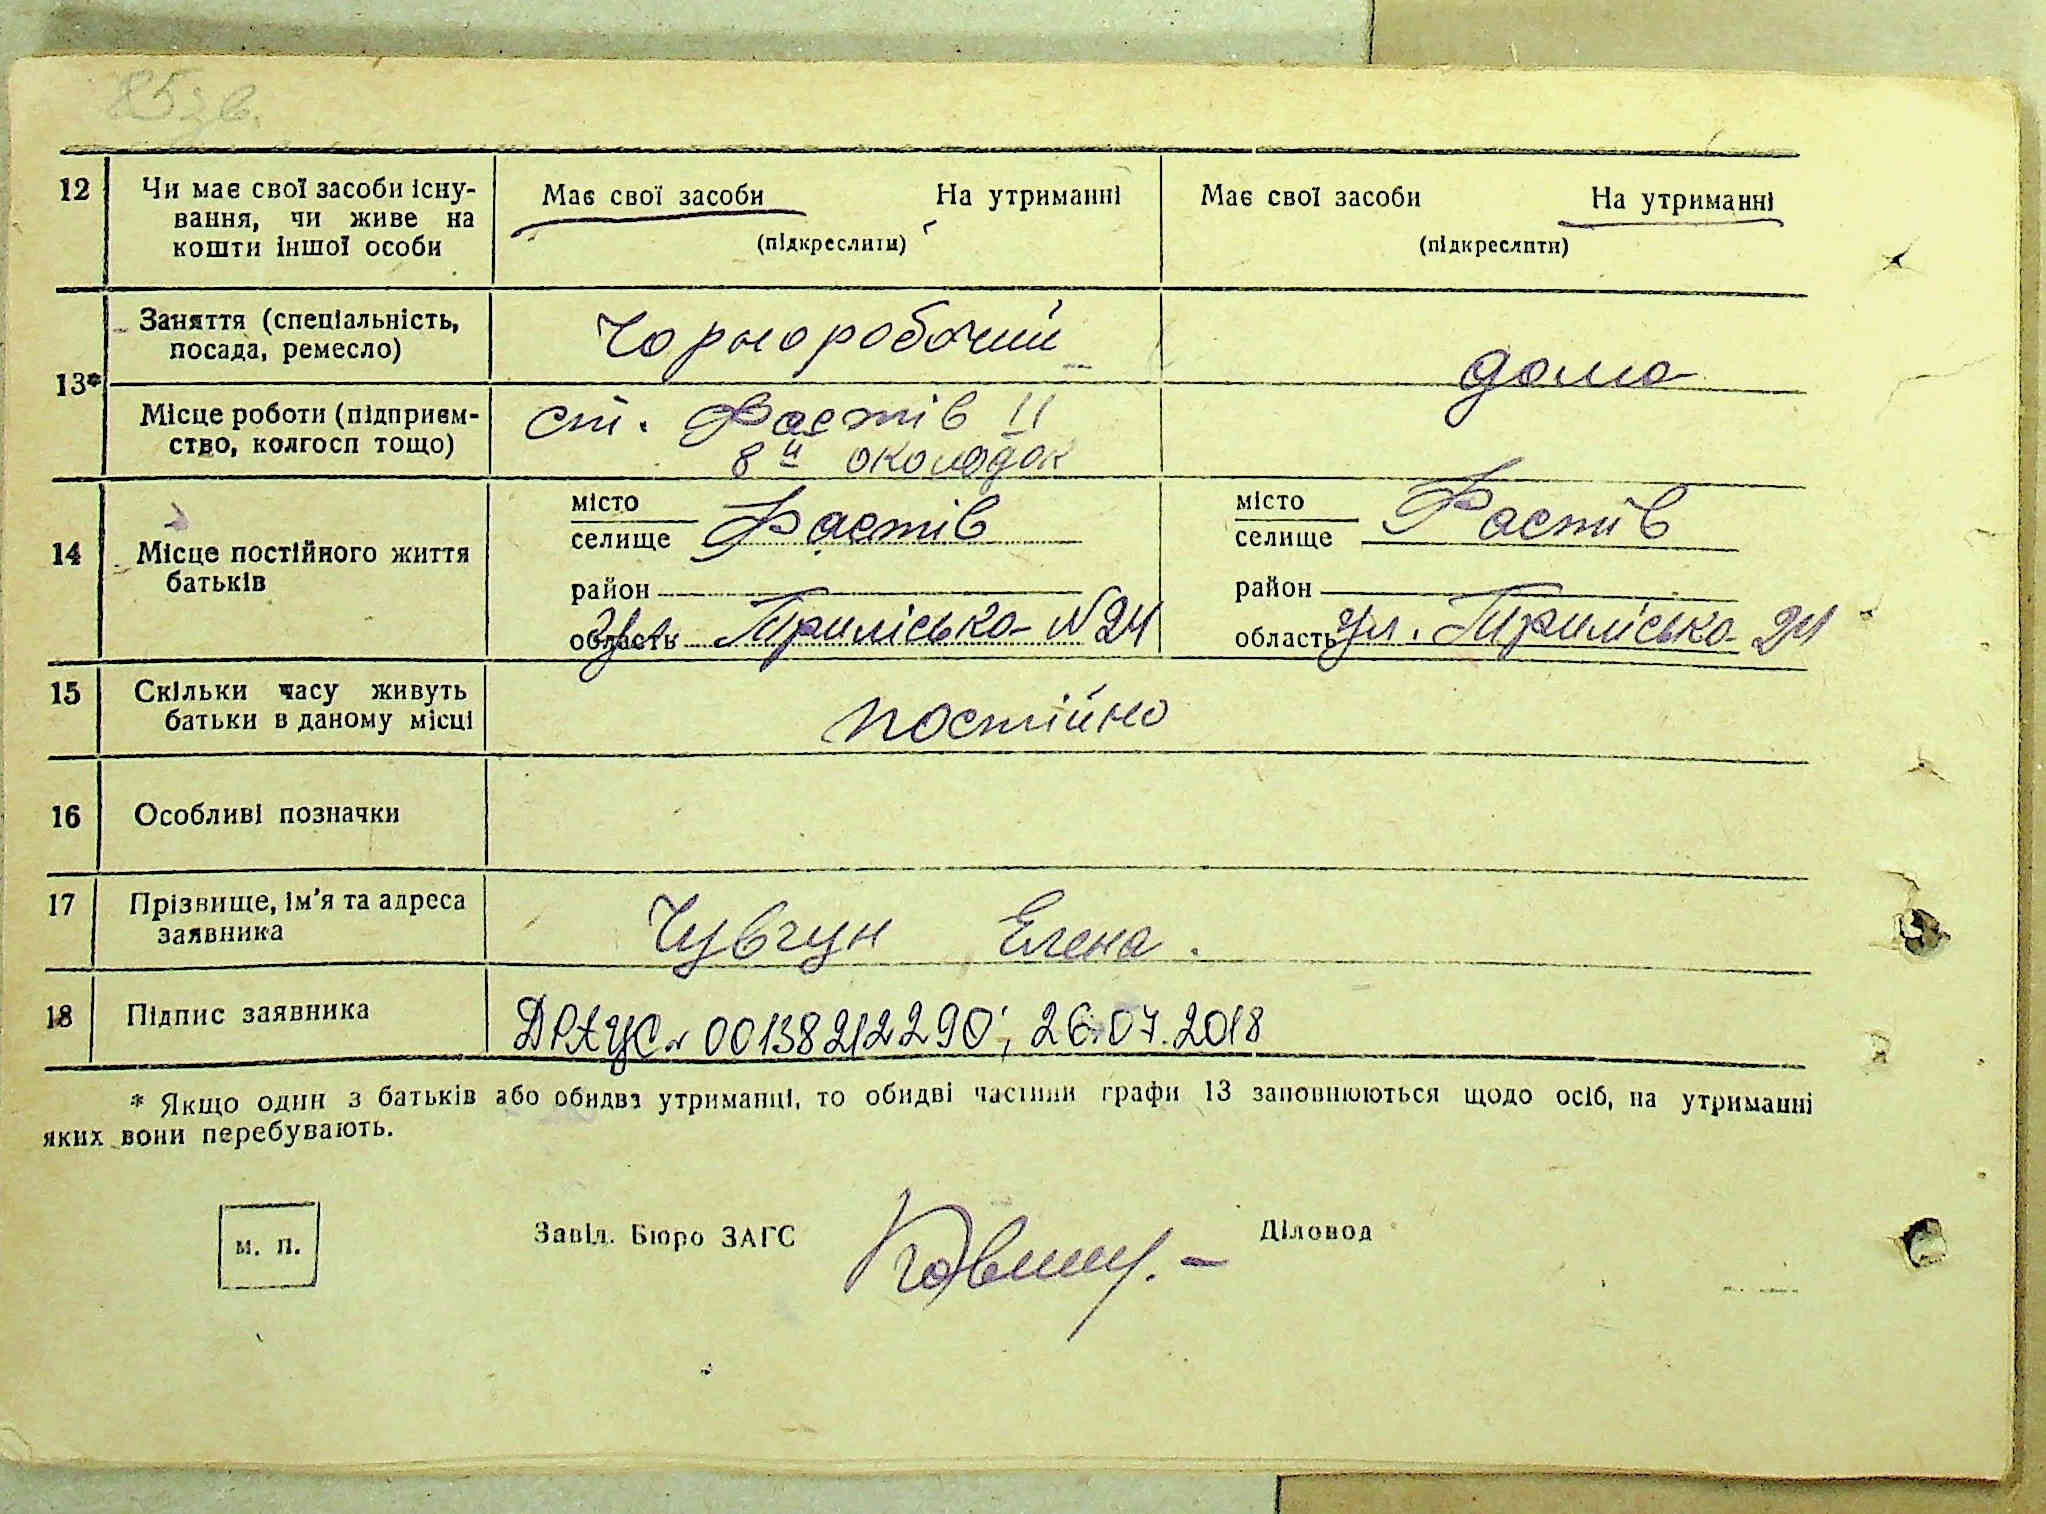 85 зв.
12 Чи має свої засоби існу- Має свої засоби На утриманні Має свої засоби На утриманні
вання, чи живе на (підкреслити) (підкреслити)
кошти іншої особи
13* Заняття (спеціальність, Чорноробочий дома
посада, ремесло)
Місце роботи (підприєм- ст. Фастів II
ство, колгосп тощо) 8й околодок
14 Місце постійного життя
батьків
місто Фастів місто Фастів
селище селище
район район
область ул. Триліська N 24 область ул. Триліська 24
15 Скільки часу живуть постійно
батьки в даному місці
16 Особливі позначки
17 Прізвище, ім'я та адреса Чувгун Елена.
заявника
18 Підпис заявника ДРАЦС 00138212290; 26.07.2018
* Якщо один з батьків або обидва утриманці, то обидві частини графи 13 заповнюються щодо осіб, на утриманні
яких вони перебувають.
м. п. Завід. Бюро ЗАГС Діловод